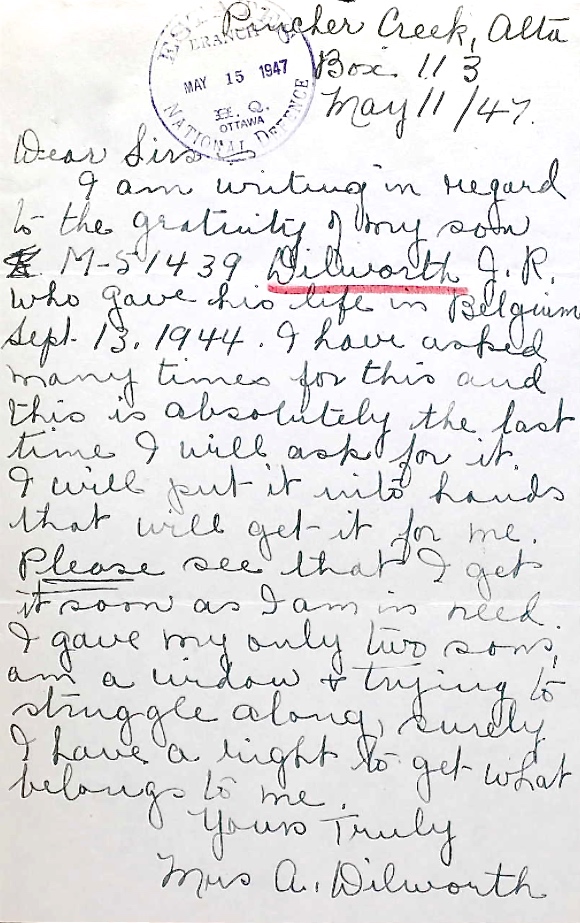 Pincher Creek, Alta
Box 113
May 11/47.
ESTATES
BRANCH
MAY 15 1947
H. Q.
OTTAWA
NATIONAL DEFENCE
Dear Sirs
I am writing in regard
to the gratuity of my son
M-51439 Dilworth J. R.
who gave his life in Belgium
Sept. 13, 1944. I have asked
many times for this and
this is absolutely the last
time I will ask for it.
I will put it into hands
that will get it for me.
Please see that I get
it soon as I am in need.
I gave my only two sons,
am a widow & trying to
struggle along, surely
I have a right to get what
belongs to me.
Yours Truly
Mrs A. Dilworth